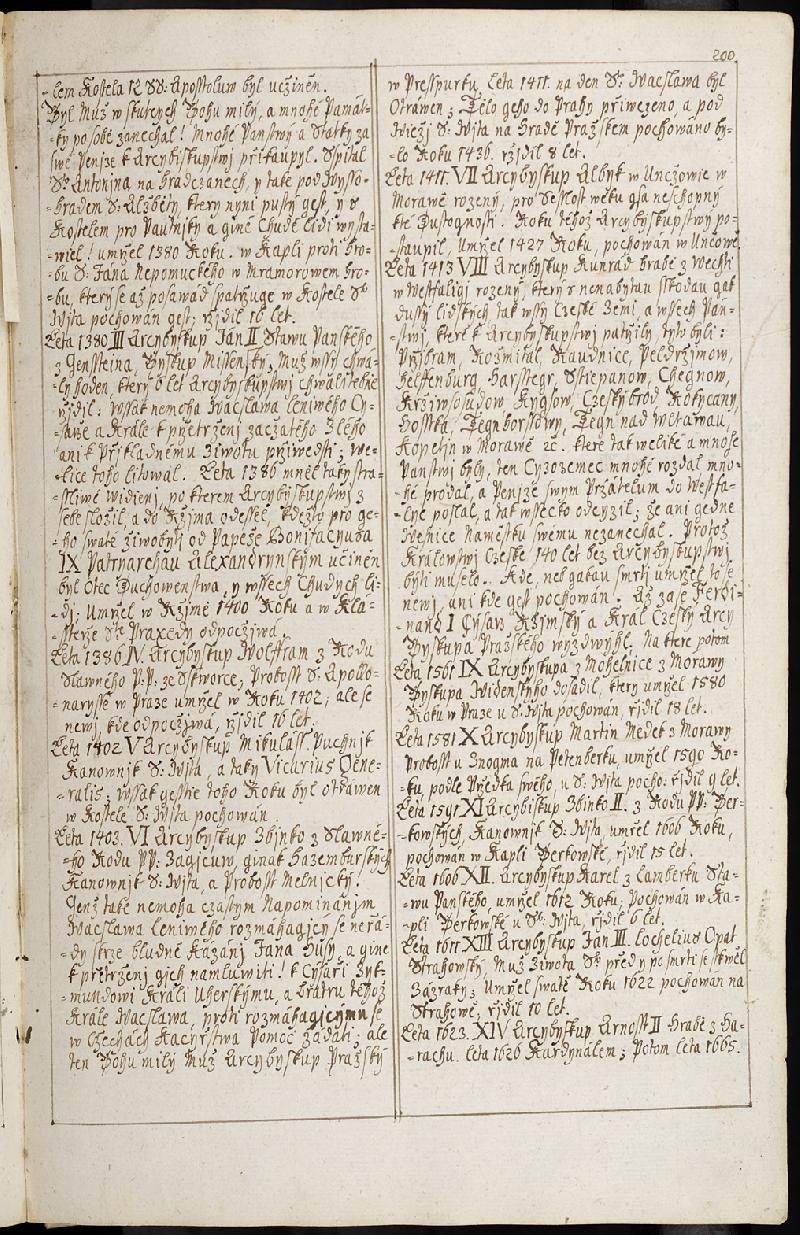 200.
-lem Kostela 12 SS: Apostoluw byl ucziněn.
Byl Muž w skutcych Bohu milý, a mnohé Památ-
-ky po sobě zanechal! Mnohé Panstwy a Statky za
swé Penjze k Arcybiskupstwj přikaupyl. Sspital
Sº Antonina na Hradczanech, y také pod Wysso-
-hradem S: Alžběty, který nynj pustý gest, y s
Kostelem pro Pautnjky a giné Chudé lidi wysta-
-wiel! umřel 1380 Roku. w Kapli proti hro-
-bu S: Jana Nepomuckého w Mramorowém hro-
-bu, který se až posawád spatřuge w Kostele Sº
Wjta pochowán gest; řjdil 16 let.
Léta 1380 III Arcybyskup Ján II Stawu Panského
z Gensteina, Byskup Missenský, Muž wssý chwá-
-ly hoden, který 6 let Arcybyskupstwj chwalitebně
řjdil: wssak nemoha Wácslawa leniwého Cy-
-saře a Krále k přetrženj začzatého Zlého
ani k Přjkladnému Žiwotu přiwesti; we-
-lice toho litowal. Léta 1386 měl taky stra-
-ssliwé widienj, po kterém Arcybyskupstwj z
sebe složil, a do Ržjma odessel, kdežto pro ge-
-ho swaté žiwobytj od Papeže Bonifacyusa
IX Patryarchau Alexandrynským učiněn
byl Otec Duchowenstwa, y wssech Chudých li-
-dj; Umřel w Ržjmě 1400 Roku a w Kla-
-steře Sº Praxedy odpoczjwá.
Léta 1386 IV Arcybyskup Wolffram z Rodu
Slawného P.P. ze Skworce; Probosst S: Apollo-
-narysse w Praze umřel w Roku 1402; ale se
newj, kde odpoczjwá, řjdil 16 let.
Léta 1402 V Arcybyskup Mikuláss. Puchnjk
Kanownjk S: Wjta, a taky Vicarius Gene-
-ralis; wssak gesstie toho Roku byl otráwen
w Kostele S: Wjta pochowán.
Léta 1403. VI Arcybyskup Zbinko z Slawné-
-ho Rodu PP: Zagjcuw, ginak Hazemburských
Kanownjk S: Wjta, a Probosst Mělnický.
Genž také nemoha czastým Napomjnánjm
Wácslawa leniwého rozmáhagjcý se neřá-
-dy skrze bludné Kázánj Jana Husy, a giné
k přitrženj gich namluwiti! k Cýsaři Zyk-
-mundowi Králi Uherskýmu, a bratru téhož
Krále Wácslawa, proti rozmáhagjcýmu se
w Cžechách Kacýřstwa Pomoc žádati; ale
ten Bohu milý Muž Arcybyskup Pražský
w Presspurku Léta 1411. na den S: Wácslawa byl
Otráwen; Tělo geho do Prahy přiwezeno, a pod
Wiežj S: Wjta na hradě Pražském pochowáno by-
-lo Roku 1436. řžjdil 8 let.
Léta 1411. VII Arcybyskup Albyk w Uneżowie w
Morawě rozený, pro Sesslost wěku gsa neschopný
kté Dustognosti. Roku téhož Arcybyskupstwy po-
-staupil, Umřel 1427 Roku, pochowán w Uncowě
Léta 1413 VIII Arcybyskup Kunrád hrabě z Wechti
w Westfaligi rozený, který z nenabytau sskodau gak
dussý lidských tak wssý Czeské Zemi, a wssech Pán-
-stwj, které k Arcybyskupstwj patřily, tyto byli:
Pržjbram, Rožmitál, Raudnice, Peldržjmow,
helffenburg, Harsstegn, Sstiepanow, Chegnow,
Kržiwsoudow, Rygsow, Czeský brod, Rokycany,
Hosstka, Tegn horssowý, Tegn nad Wltawau,
Kopetjn w Morawě ꝛc. které tak weliké a mnohé
Panstwj byly, ten Cyzozemec mnohé rozdal mno-
-hé prodal, a Penjze swým Pržátelum do Westfa-
-lye poslal, a tak wssecko odcyzil; že ani gedné
Wesnice Náměstku swému nezanechal. Protož
Králowstwj Czeské 140 let bez Arcybyskupstwj
býti muselo. Kde, neb gakau smrtj umřel to se
newj, ani kde gest pochowán. Až zase Ferdi-
-nand I Cýsarž Ržjmský a Král Czeský Arcy
Byskupa Pražského wyzdwyhl. Na které potom
Léta 1561 IX Arcybyskupa z Mohelnice z Morawy
Byskupa Wjdenského dosadil, který umřel 1580
Roku w Praze u S: Wjta pochowán, řjdil 18 let.
Léta 1581 X Arcybyskup Martin Medek z Morawy
Probosst u Znogma na Petenberku, umřel 1590 Ro-
-ku, podle Předka swého, u S: Wjta pocho: řjdil 9 let.
Léta 1591 XI Arcybiskup Zbinko II. z Rodu PP: Ber-
-kowských, Kanownjk S: Wjta, umřel 1606 Roku,
pochowán w Kapli Berkowské, řjdil 15 let.
Léta 1606 XII. Arcybyskup Karel z Lamberku Sta-
-wu Panského, umřel 1612 Roku, Pochowán w Ka-
-pli Berkowské u Sº: Wjta, řjdil 6 let.
Léta 1611 XIII Arcybyskup Jan III. Lochelius Opat
Strahowský, Muž žiwota Sº před y po smrti se stkwěl
Zázraky; Umřel swatě Roku 1622 pochowán na
Strahowě; řjdil 10 let.
Léta 1623. XIV Arcybyskup Arnosst II Hrabě z Ha-
-rachu. léta 1626 Kardynálem; Potom léta 1665.